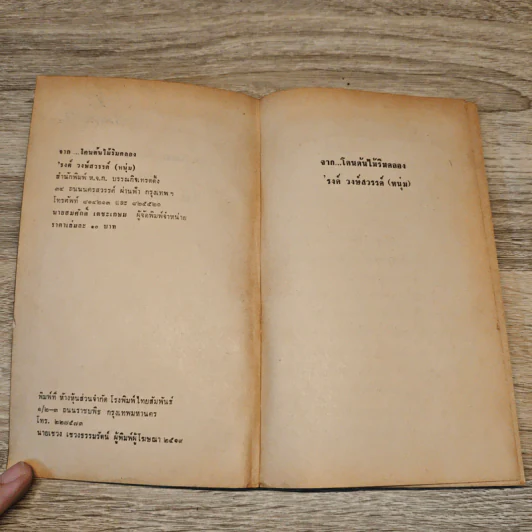 จาก ...โคนต้นไม้ริมคลอง
'รงค์ วงษ์สวรรค์ (หนุ่ม)
สำนักพิมพ์ ห.จ.ก. บรรณกิจเทรดดิ้ง
๓๔ ถนนนครสวรรค์ ผ่านฟ้า กรุงเทพฯ
โทรศัพท์ และ
นายสมศักดิ์ เตชะเกษม ผู้จัดพิมพ์จำหน่าย
ราคาเล่มละ ๑๐ บาท
พิมพ์ที่ ห้างหุ้นส่วนจำกัด โรงพิมพ์ไทยสัมพันธ์
๑/๒-๓ ถนนราชบพิธ กรุงเทพมหานคร
โทร. ๒๒๗๕๗๓
นายเชวง เชวงธรรมรัตน์ ผู้พิมพ์ผู้โฆษณา
จาก...โคนต้นไม้ริมคลอง
'รงค์ วงษ์สวรรค์ (หนุ่ม)